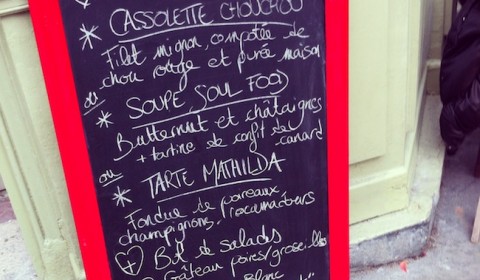 CASSOLETTE CHOUCHOU
* Filet mignon, compotée de
chou rouge et purée maison
ou
* SOUPE SOUL FOOD
Butternut et châtaignes
+ tartine de confit de canard
ou
* TARTE MATHILDA
Fondue de poireaux
champignons,
Bol de salades
Gâteau poires/groseilles
Blanc